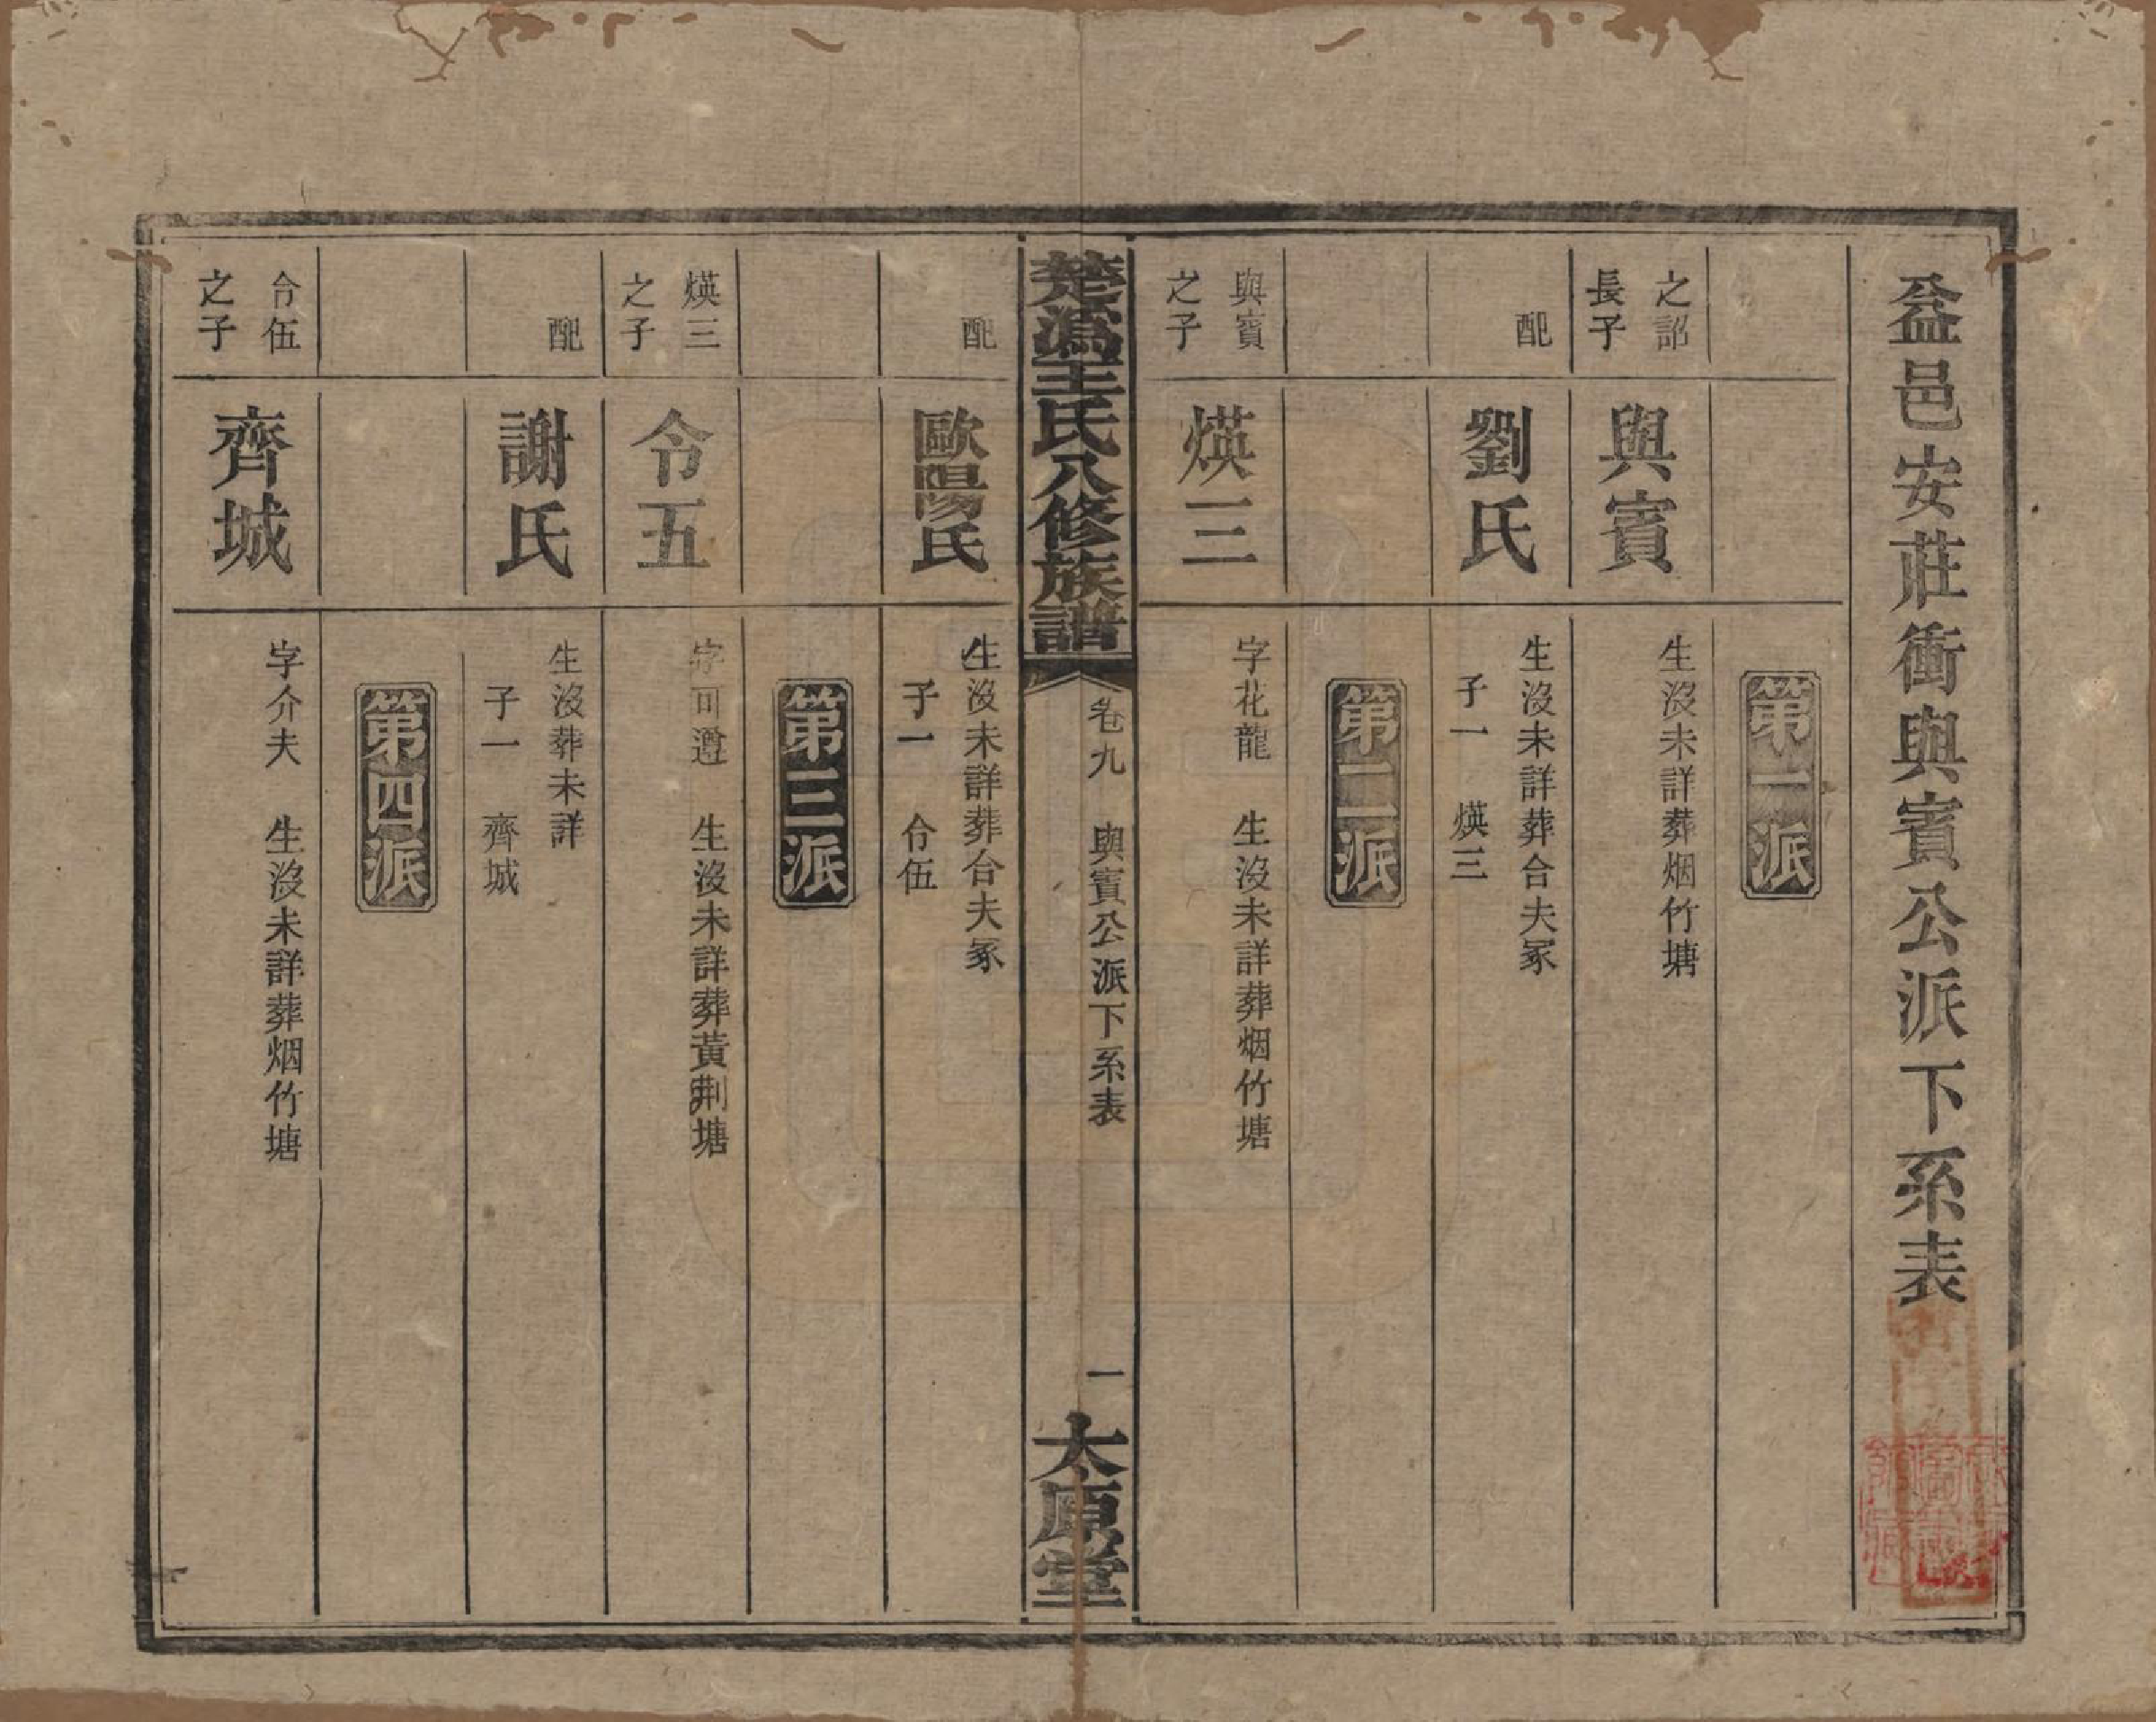 益邑安莊衝與賓公派下系表
第一派
之詔
長子
與賓
生沒未詳葬烟竹塘
配
劉氏
生沒未詳葬合夫冢
子一　煐三
第二派
與賓
之子
煐三
字花龍　生沒未詳葬烟竹塘
楚溈王氏八修族譜
卷九　與賓公派下系表
一
太原堂
配
歐陽氏
生沒未詳葬合夫冢
子一　令伍
第三派
煐三
之子
令五
字可遵　生沒未詳葬黃荆塘
配
謝氏
生沒葬未詳
子一　齊城
第四派
令伍
之子
齊城
字介夫　生沒未詳葬烟竹塘